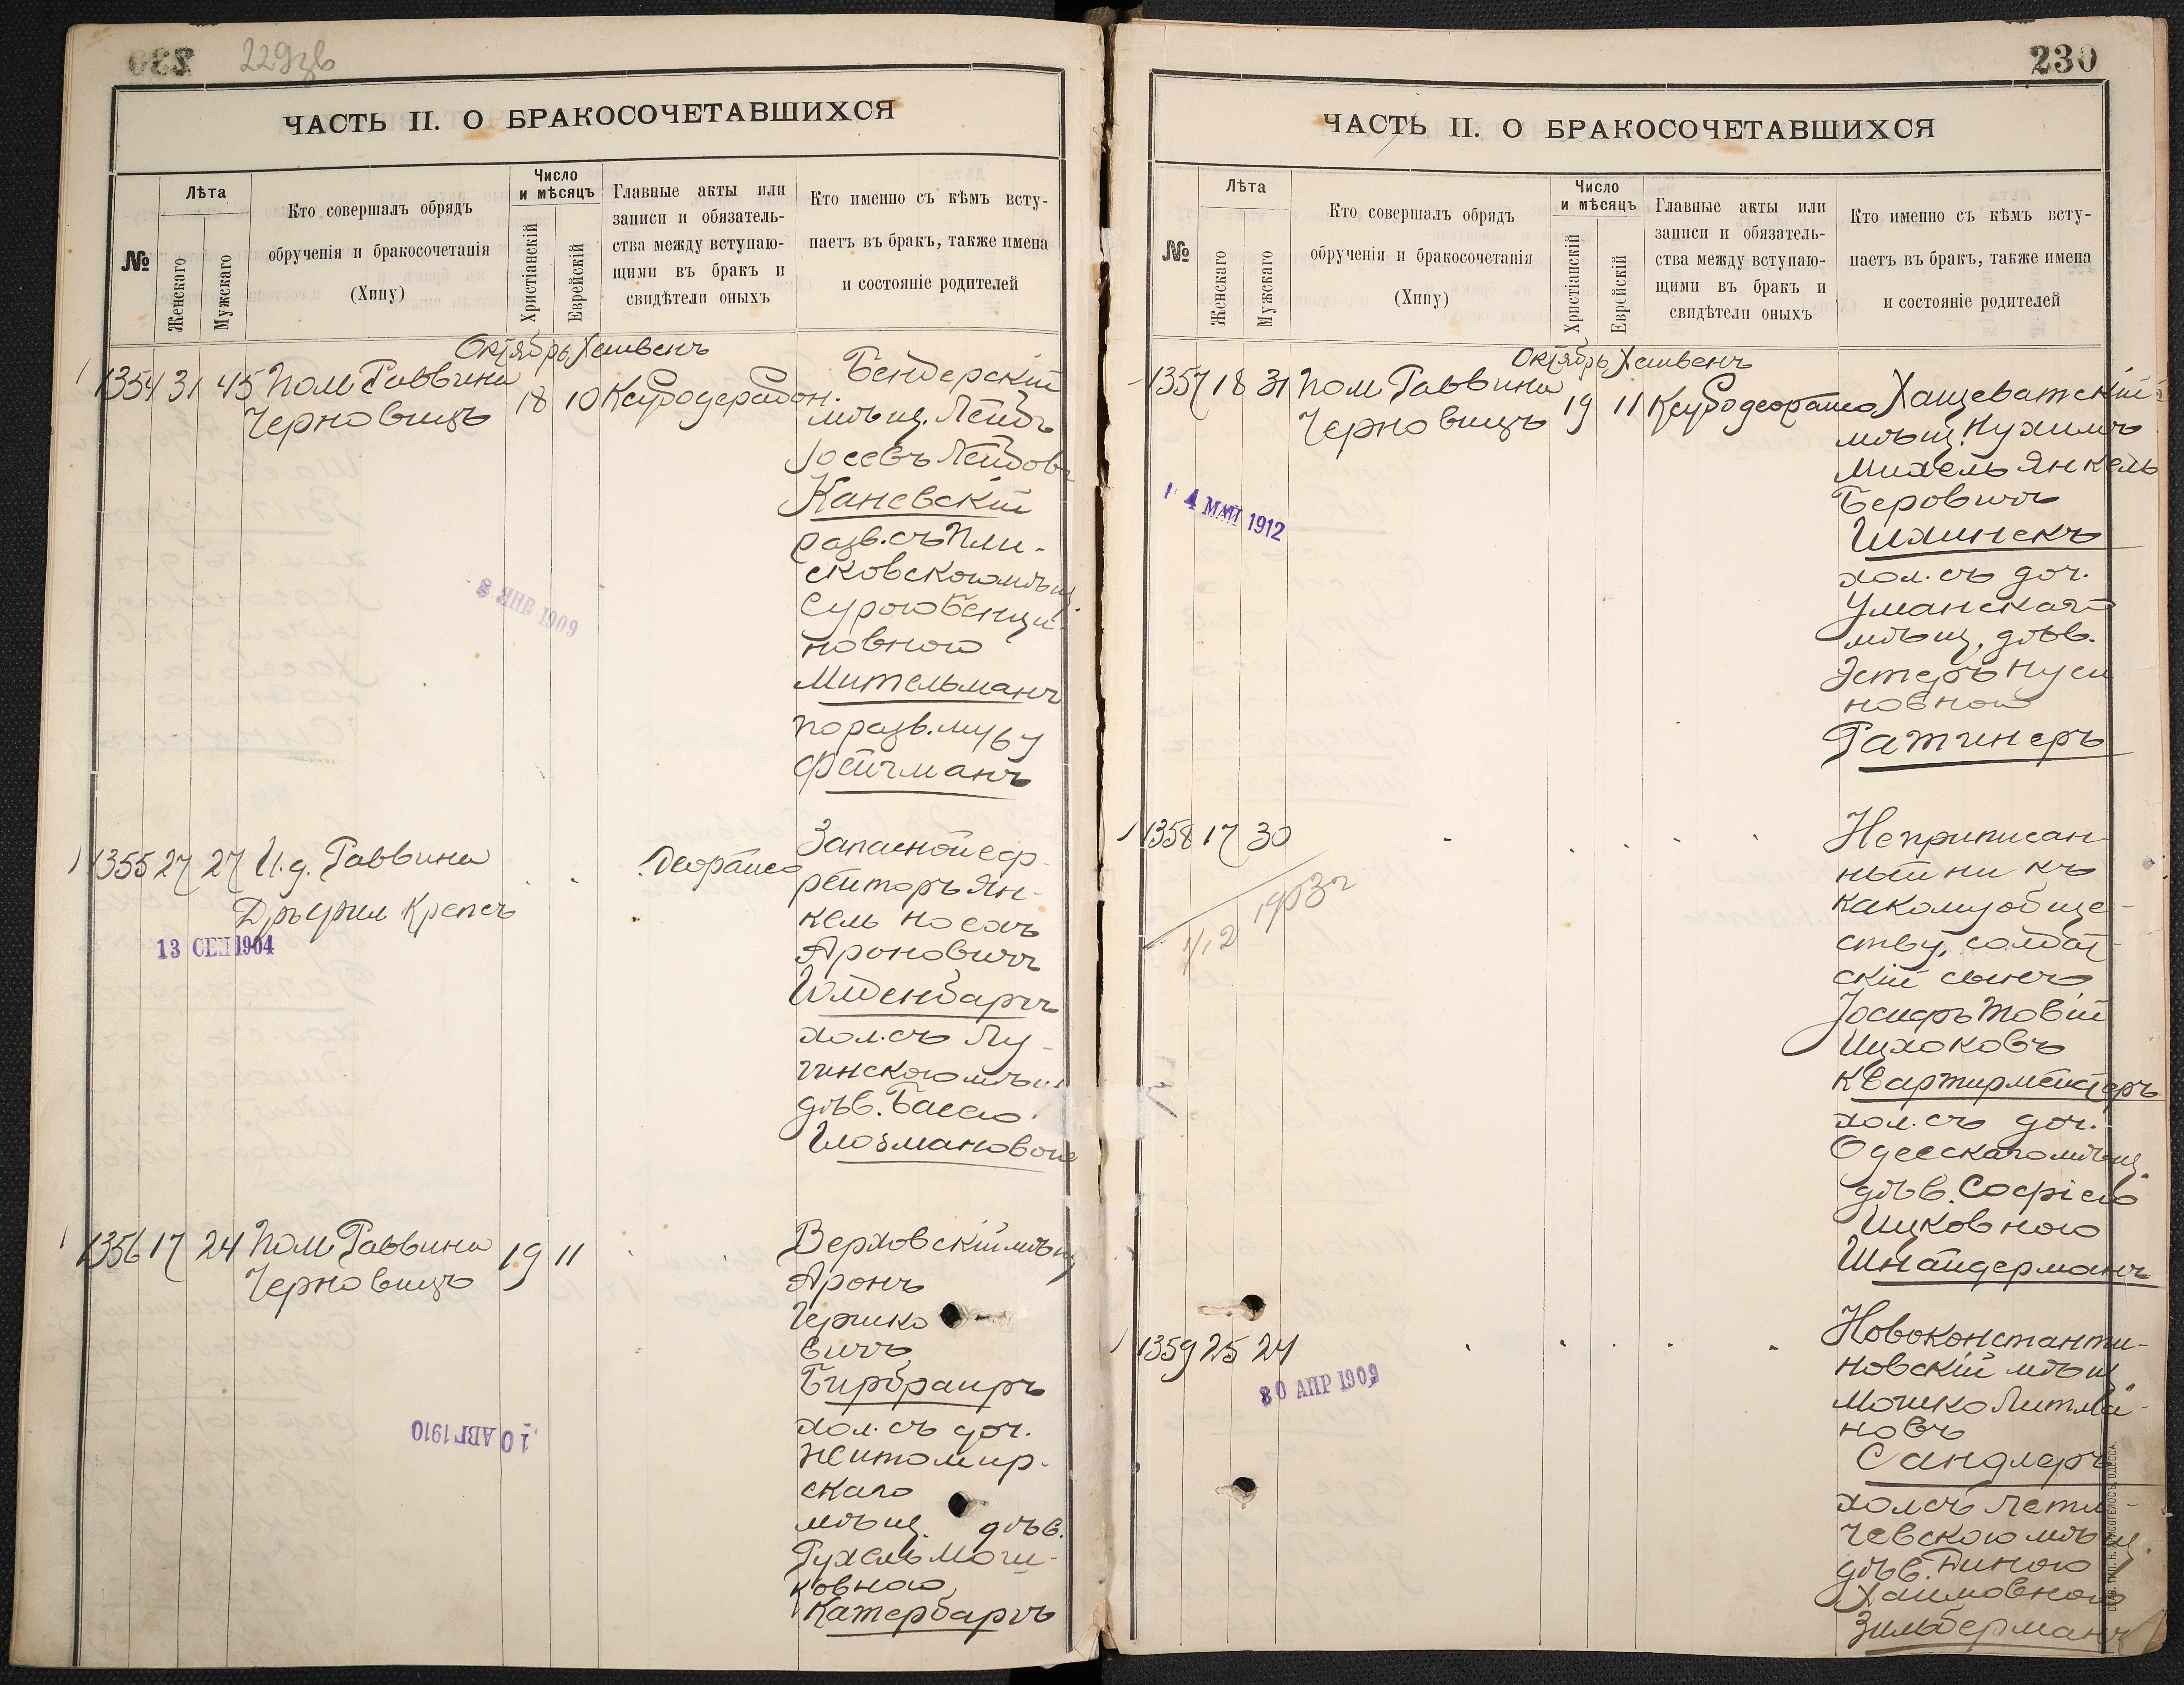 230 229зв
ЧАСТЬ II. О БРАКОСОЧЕТАВШИХСЯ
№
Лѣта
Женскаго
Мужскаго
Кто совершалъ обрядъ
обрученія и бракосочетанія
(Хипу)
Число
и мѣсяцъ
Христіанскій
Еврейскій
Главные акты или
записи и обязатель-
ства между вступаю-
щими въ бракъ и
свидѣтели оныхъ
Кто именно съ кѣмъ всту-
паетъ въ бракъ, также имена
и состояніе родителей
Октябрь Хешвенъ
1354 31 45 Пом Раввина
Черновицъ
18 10
Бендерскій
мѣщ. Лейбъ
Іосевъ Лейбовъ
Каневскій
разв. съ Пли-
сковскою мѣщ.
Сурою Бенци-
новною
Мительманъ
по разв. мужу
Фейгманъ
8 ЯНВ 1909
1355 27 27 И. д. Раввина
Дръ Крепсъ
13 СЕН 1904
Запасной еф-
рейторъ Ян-
кель Носонъ
Ароновичъ
Гольденбергъ
хол. съ Лу-
гинскою мѣщ
дѣв. Басею
Глозмановою
1356 17 24 Пом Раввина
Черновицъ
19 11
Верховскій мѣщ
Аронъ
Гершко
вичъ
Бирбраиръ
хол. съ доч.
Житомир-
скаго
мѣщ. дѣв.
Рухель Мош-
ковною
Катербаргъ
10 АВГ 1910
230
ЧАСТЬ II. О БРАКОСОЧЕТАВШИХСЯ
№
Лѣта
Женскаго
Мужскаго
Кто совершалъ обрядъ
обрученія и бракосочетанія
(Хипу)
Число
и мѣсяцъ
Христіанскій
Еврейскій
Главные акты или
записи и обязатель-
ства между вступаю-
щими въ бракъ и
свидѣтели оныхъ
Кто именно съ кѣмъ всту-
паетъ въ бракъ, также имена
и состояніе родителей
Октябрь Хешвенъ
1357 18 31 Пом Раввина
Черновицъ
19 11
Хащеватскій
мѣщ. Нухимъ
Михель Янкель
Беровичъ
хол. съ доч.
Уманскаго
мѣщ, дѣв.
Эстеръ Нуси
новною
Ратинеръ
4 МАЙ 1912
1358 17 30
Неприписан
ный ни къ
какому обще-
ству, солдат-
скій сынъ
Іосифъ Товій
Ицхоковъ
Квартирмейстеръ
хол. съ доч.
Одесскаго мѣщ.
дѣв. Софіею
Ицковною
Шнайдерманъ
1359 25 24
30 АПР 1909
Новоконстанти-
новскій мѣщ
Мошко Литма-
новъ
Сандлеръ
хол съ Лети-
чевскою мѣщ.
дѣв. Диною
Хаимовною
Зильберманъ